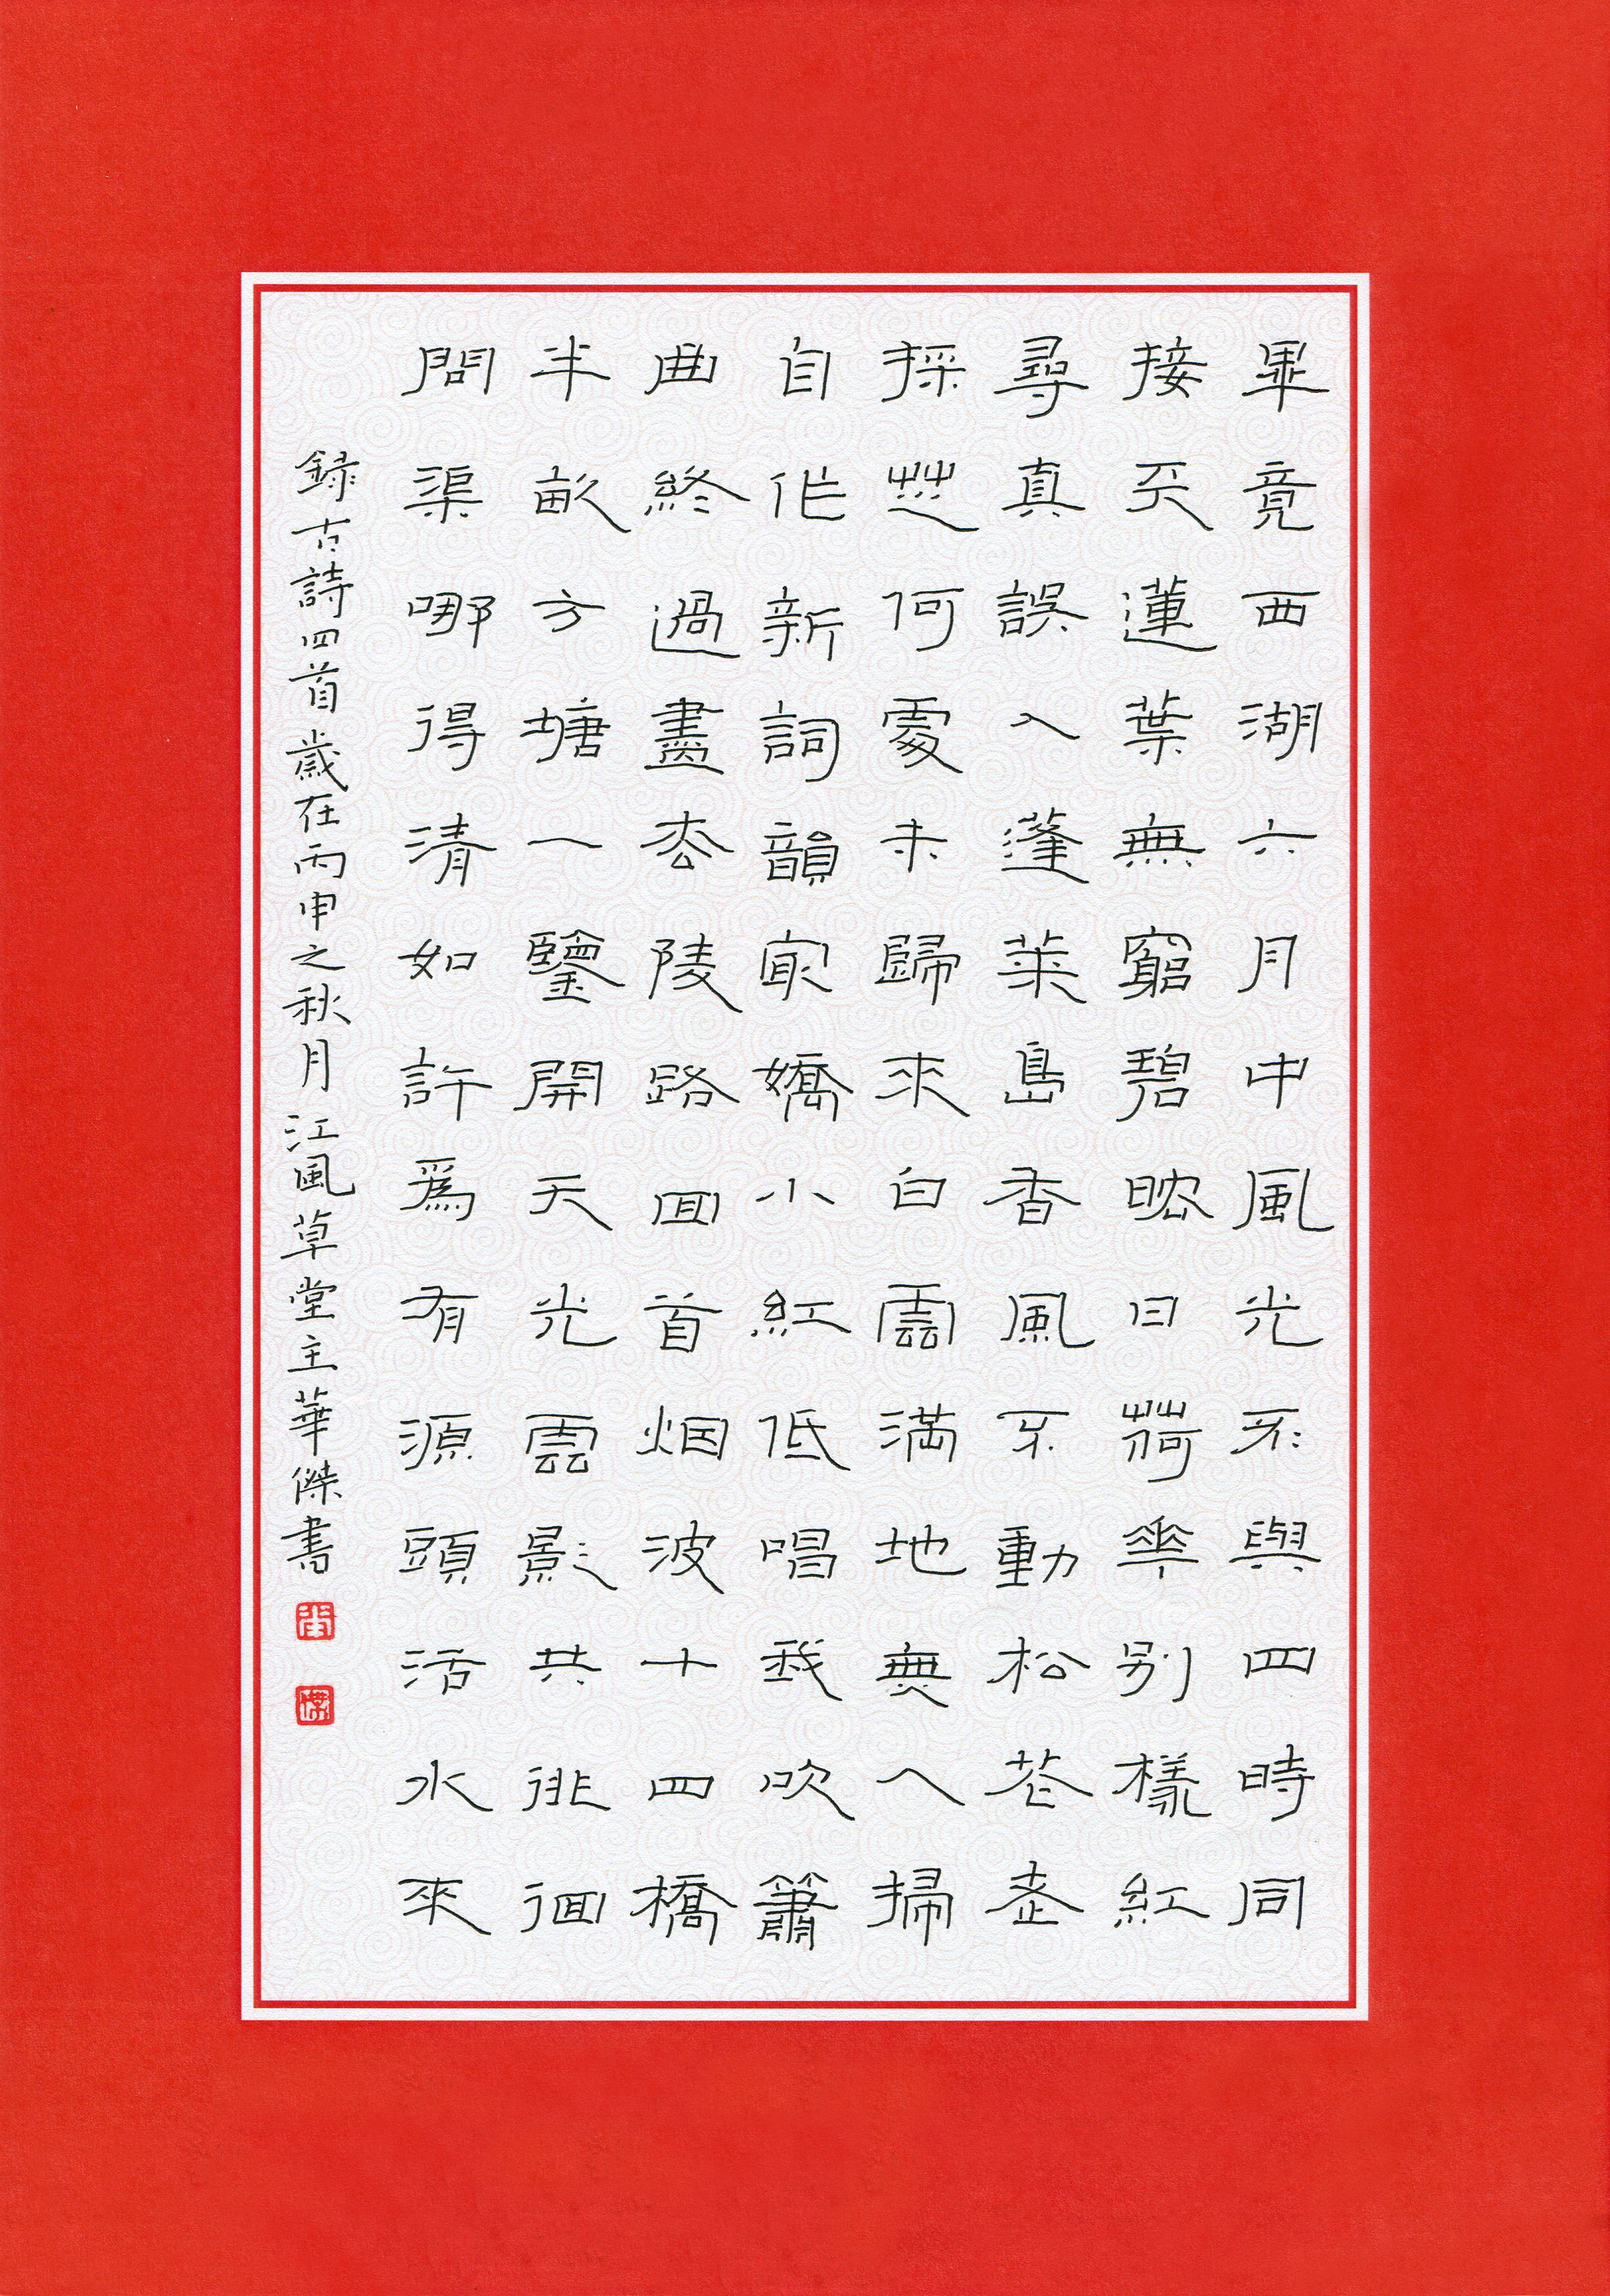 畢竟西湖六月中風光不與四時同
接天蓮葉無窮碧映日荷華別樣紅
尋真誤入蓬萊島香風不動松花老
採芝何處未歸來白雲滿地無人掃
自作新詞韻最嬌小紅低唱我吹簫
曲終過盡松陵路回首烟波十四橋
半畝方塘一鑒開天光雲影共徘徊
問渠哪得清如許為有源頭活水來
錄古詩四首歲在丙申之秋月江風草堂主華傑書